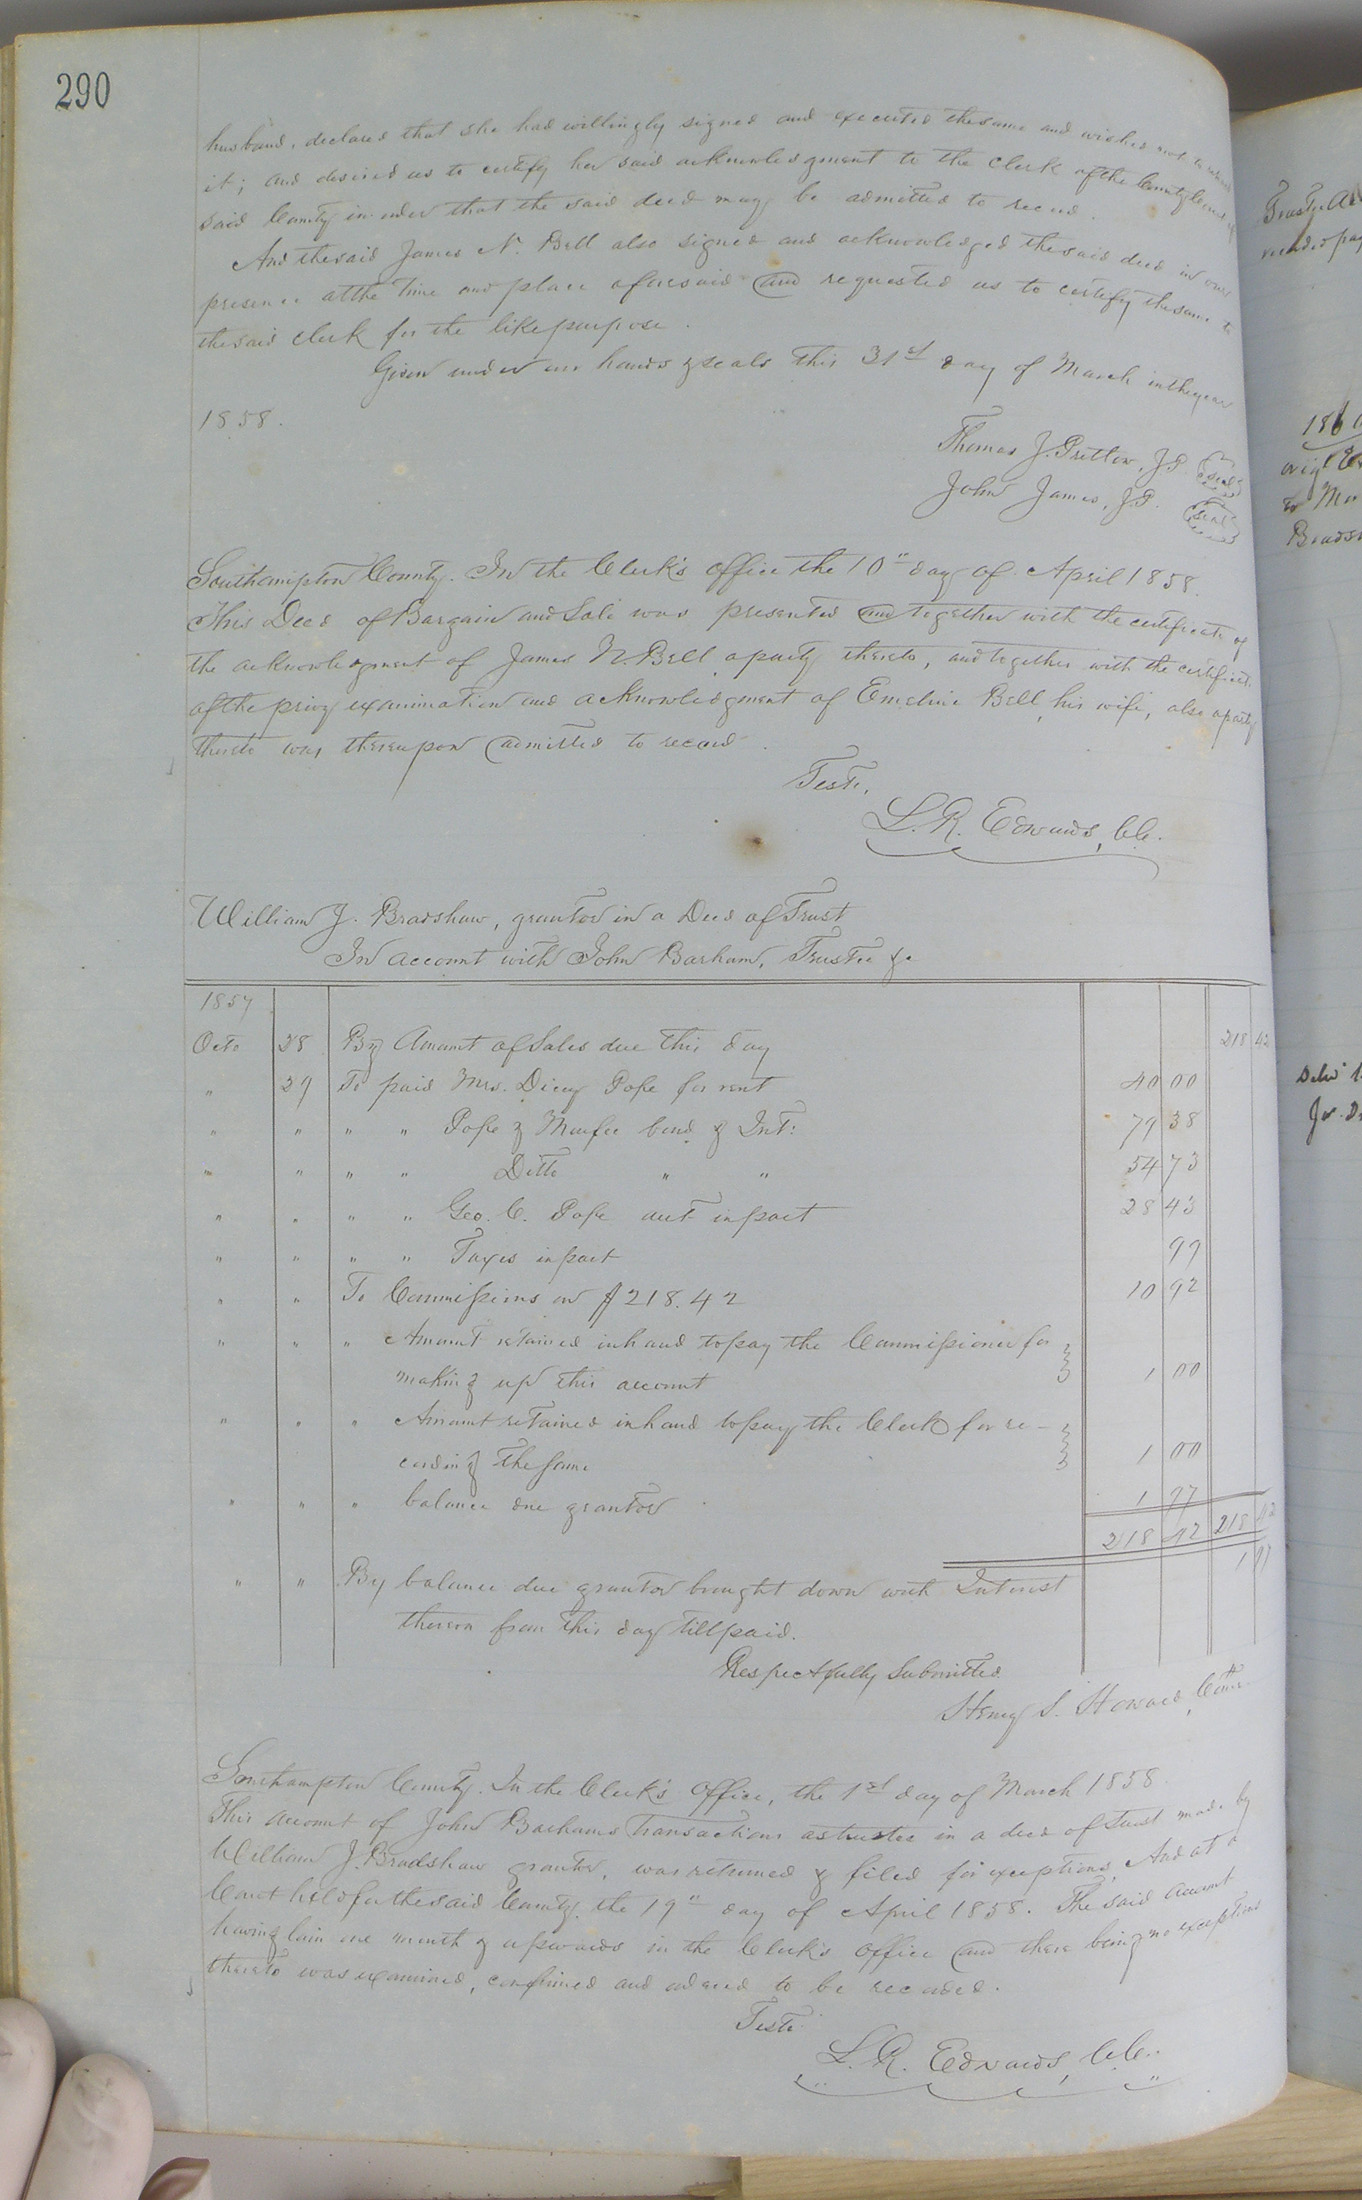 290
husband, declared that she had willingly signed and executed the same and wishes not to retract
it; and desired us to certify her said acknowledgment to the Clerk of the County Court of
said County in order that the said deed may be admitted to record.
And the said James N. Bell also signed and acknowledged the said deed in our
presence at the time and place aforesaid and requested us to certify the same to
the said clerk for the like purpose.
Given under our hands & seals this 31st day of March in the year
1858.
Thomas J. Pretlow, J.P. seal
John James, J.P. seal
Southampton County. In the Clerk's office the 10" day of April 1858.
This Deed of Bargain and Sale was presented and together with the certificate of
the acknowledgment of James N. Bell a party thereto, and together with the certificate
of the privy examination and acknowledgment of Emeline Bell, his wife, also a party
thereto was thereupon admitted to record.
Teste,
L. R. Edwards, C.C.
William J. Bradshaw, grantor in a Deed of Trust
In account with John Barham, Trustee &c
1857
Octo 28 By Amount of Sales due this day 218 42
" 29 To paid Mrs. Dicey Pope for rent 40 00
" " " " Pope & Murfee bond & Int: 79 38
" " " " Ditto " " 54 73
" " " " Geo. C. Pope acct in part 28 43
" " " " Taxes in part 99
" " To Commissions on $218.42 10 92
" " " Amount retained in hand to pay the Commissioner for
making up this account 1 00
" " " Amount retained in hand to pay the Clerk for re-
cording the same 1 00
" " " balance due grantor 1 97
218 42 218 42
" " By balance due grantor brought down with Interest 1 97
thereon from this day till paid.
Respectfully Submitted
Henry S. Howard, Comr.
Southampton County. In the Clerk's Office, the 1st day of March 1858.
This account of John Barhams transactions as trustee in a deed of trust made by
William J. Bradshaw grantor, was returned & filed for exceptions, And at a
Court held for the said County, the 19" day of April 1858. The said account
having lain one month & upwards in the Clerk's office and there being no exceptions
thereto was examined, confirmed and ordered to be recorded.
Teste
L. R. Edwards, C.C.